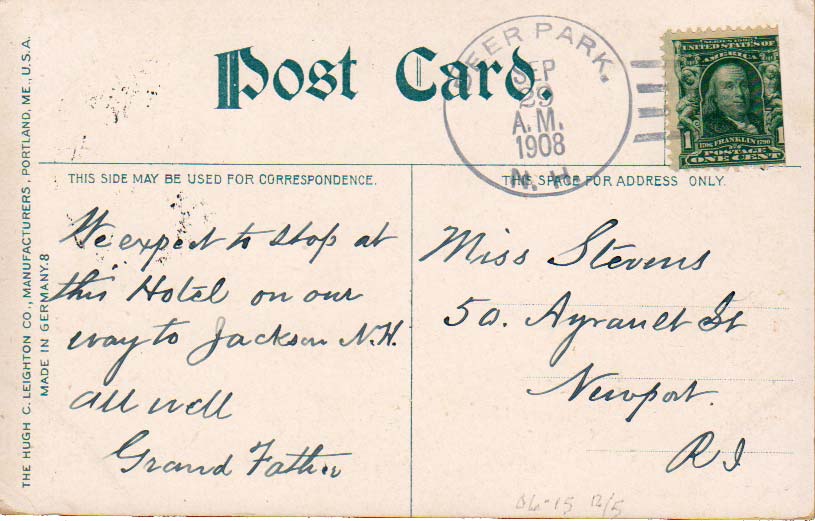 Post Card.
DEER PARK.
SEP
29
A.M.
1908
N.H.
SERIES 1902
UNITED STATES OF
AMERICA
1 1706 FRANKLIN 1790 1
POSTAGE
ONE CENT
THIS SIDE MAY BE USED FOR CORRESPONDENCE.
THIS SPACE FOR ADDRESS ONLY.
We expect to stop at
this Hotel on our
way to Jackson N.H.
all well
Grand Father
Miss Stevens
50. Ayrault St
Newport.
R I
THE HUGH C. LEIGHTON CO., MANUFACTURERS, PORTLAND, ME., U.S.A.
MADE IN GERMANY. 8